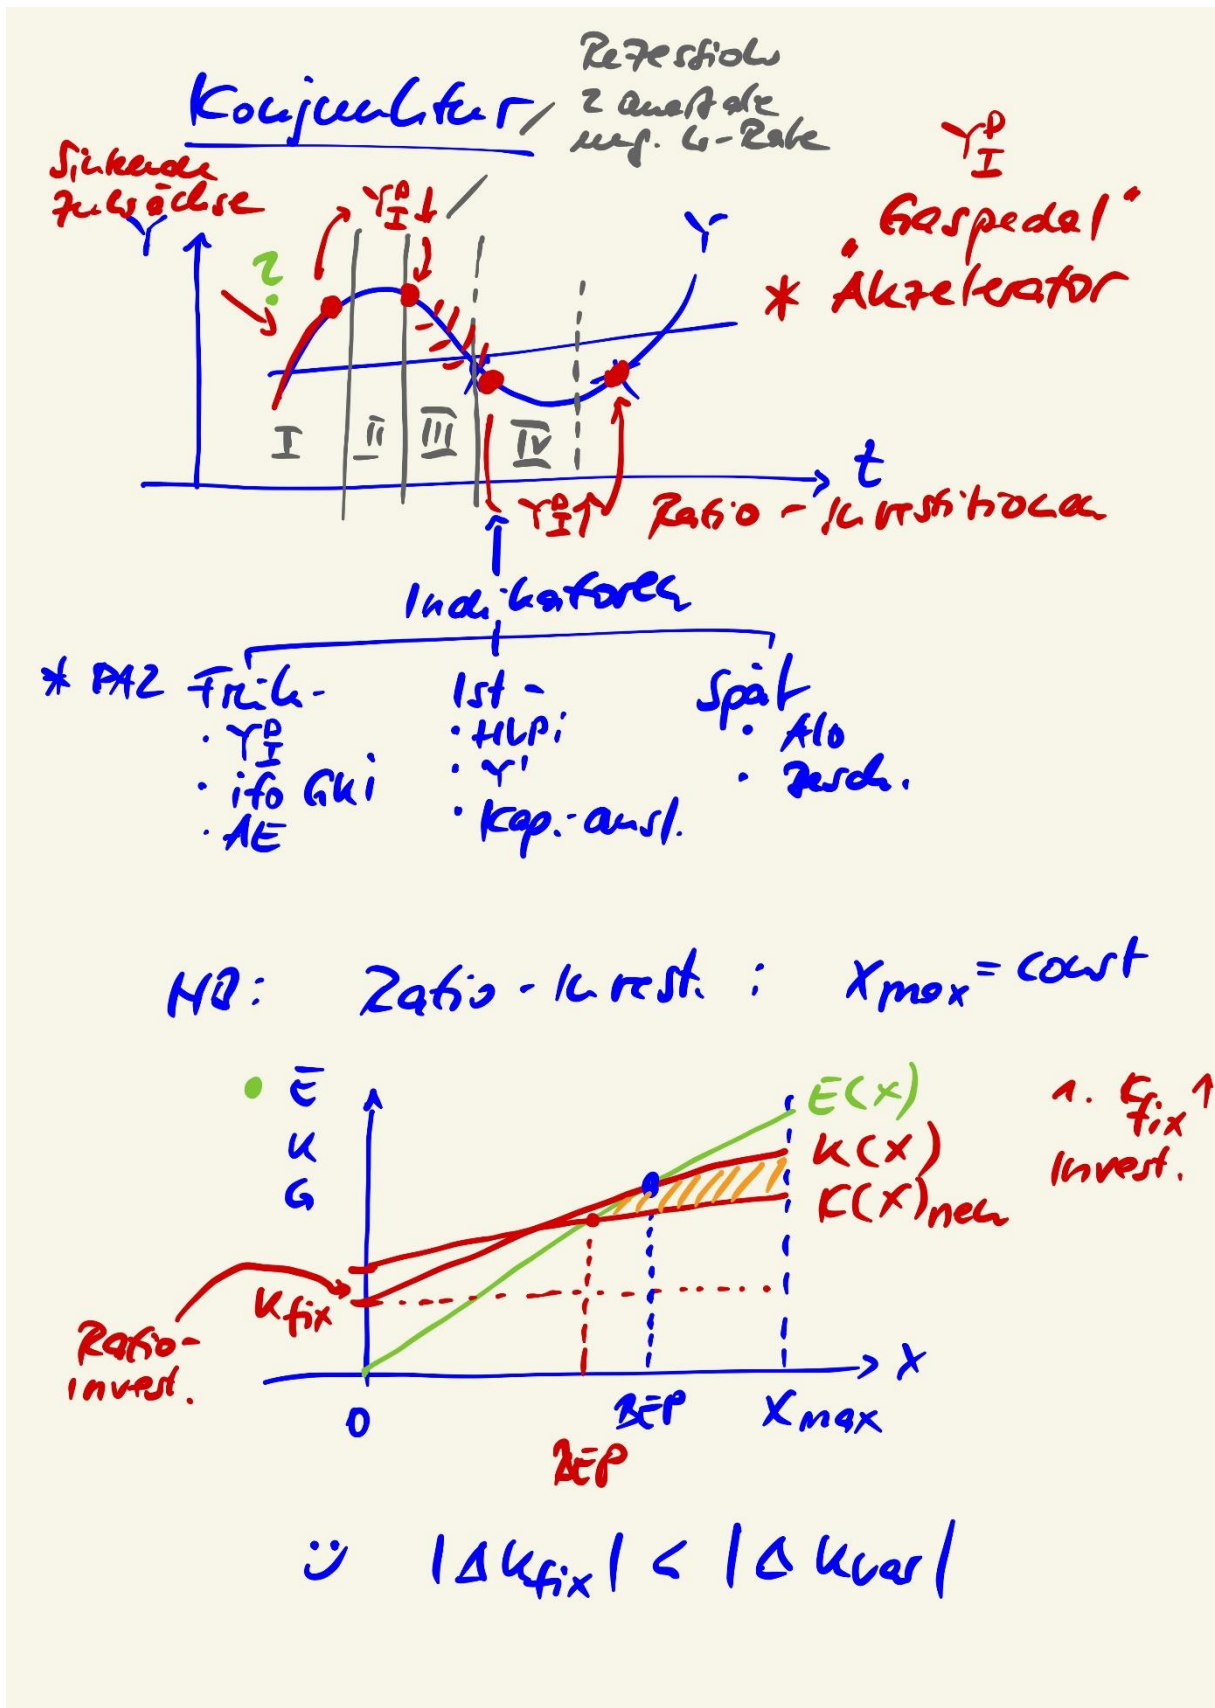 Konjunktur
Rezession
2 Quartale
neg. W-Rate
Sinkende
Zuwächse
Y
?
Y D I ↓
Y
Y D I
"Gaspedal"
* Akzelerator
I
II
III
IV
t
Y D I ↑
Ratio-Investitionen
Indikatoren
* PA2
Früh-
Ist-
Spät
· Y D I
· ifo GKi
· AE
· HVPi
· Y'
· Kap.-ausl.
· Alo
· Besch.
NB: Ratio-Invest. : Xmax = const
E
K
G
E(x)
K(x)
K(x)neu
1. Kfix ↑
Invest.
Kfix
Ratio-
invest.
0
BEP
Xmax
x
BEP
|ΔKfix| < |ΔKvar|